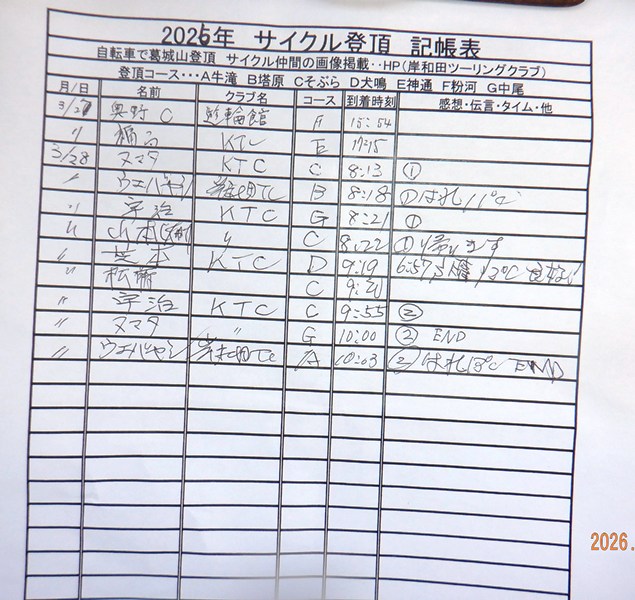 2026年 サイクル登頂 記帳表
自転車で葛城山登頂 サイクル仲間の画像掲載‥HP(岸和田ツーリングクラブ)
登頂コース･･･A牛滝 B塔原 Cそぶら D犬鳴 E神通 F粉河 G中尾
月/日 名前 クラブ名 コース 到着時刻 感想・伝言・タイム・他
3/27 奥野 C 輪館 A 15:54
〃 KTC E 17:15
3/28 ヌマタ KTC C 8:13 ①
〃 ウエバヤシ B 8:18 ①はれ 11℃
〃 宇治 KTC G 8:21 ①
〃 山本 〃 C 8:22 ①帰ります
〃 芝本 KTC D 9:19
〃 C 9:20
〃 宇治 KTC C 9:55 ②
〃 ヌマタ 〃 G 10:00 ② END
〃 ウエバヤシ A 10:03 ② はれ END
2026.